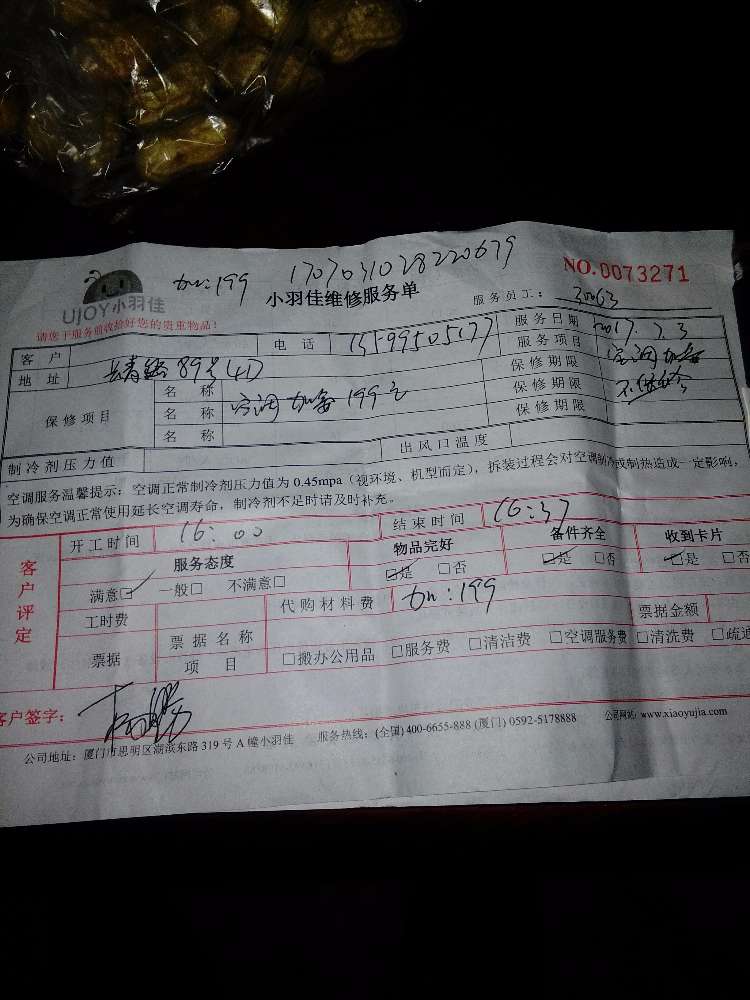 17070310282220679
NO.0073271
UJOY小羽佳
小羽佳维修服务单
服务员工: 30063
请您于服务前收拾好您的贵重物品!
客户
电话 13599505177
服务日期 2017.7.3
地址 长青路89号
服务项目 空调加氟
保修项目
名称 空调加氟199元
名称
名称
保修期限 不保修
保修期限
保修期限
制冷剂压力值
出风口温度
空调服务温馨提示:空调正常制冷剂压力值为0.45mpa(视环境、机型而定),拆装过程会对空调制冷或制热造成一定影响,
为确保空调正常使用延长空调寿命,制冷剂不足时请及时补充。
客户评定
开工时间 16:00
结束时间 16:37
服务态度
物品完好
备件齐全
收到卡片
满意☑ 一般□ 不满意□
☑是 □否
☑是 □否
☑是 □否
工时费
代购材料费
:199
票据
票据名称
票据金额
项目
□搬办公用品 □服务费 □清洁费 □空调服务费 □清洗费 □疏通
客户签字:
公司地址:厦门市思明区湖滨东路319号A幢小羽佳 服务热线:(全国)400-6655-888 (厦门) 0592-5178888 公司网站: www.xiaoyujia.com